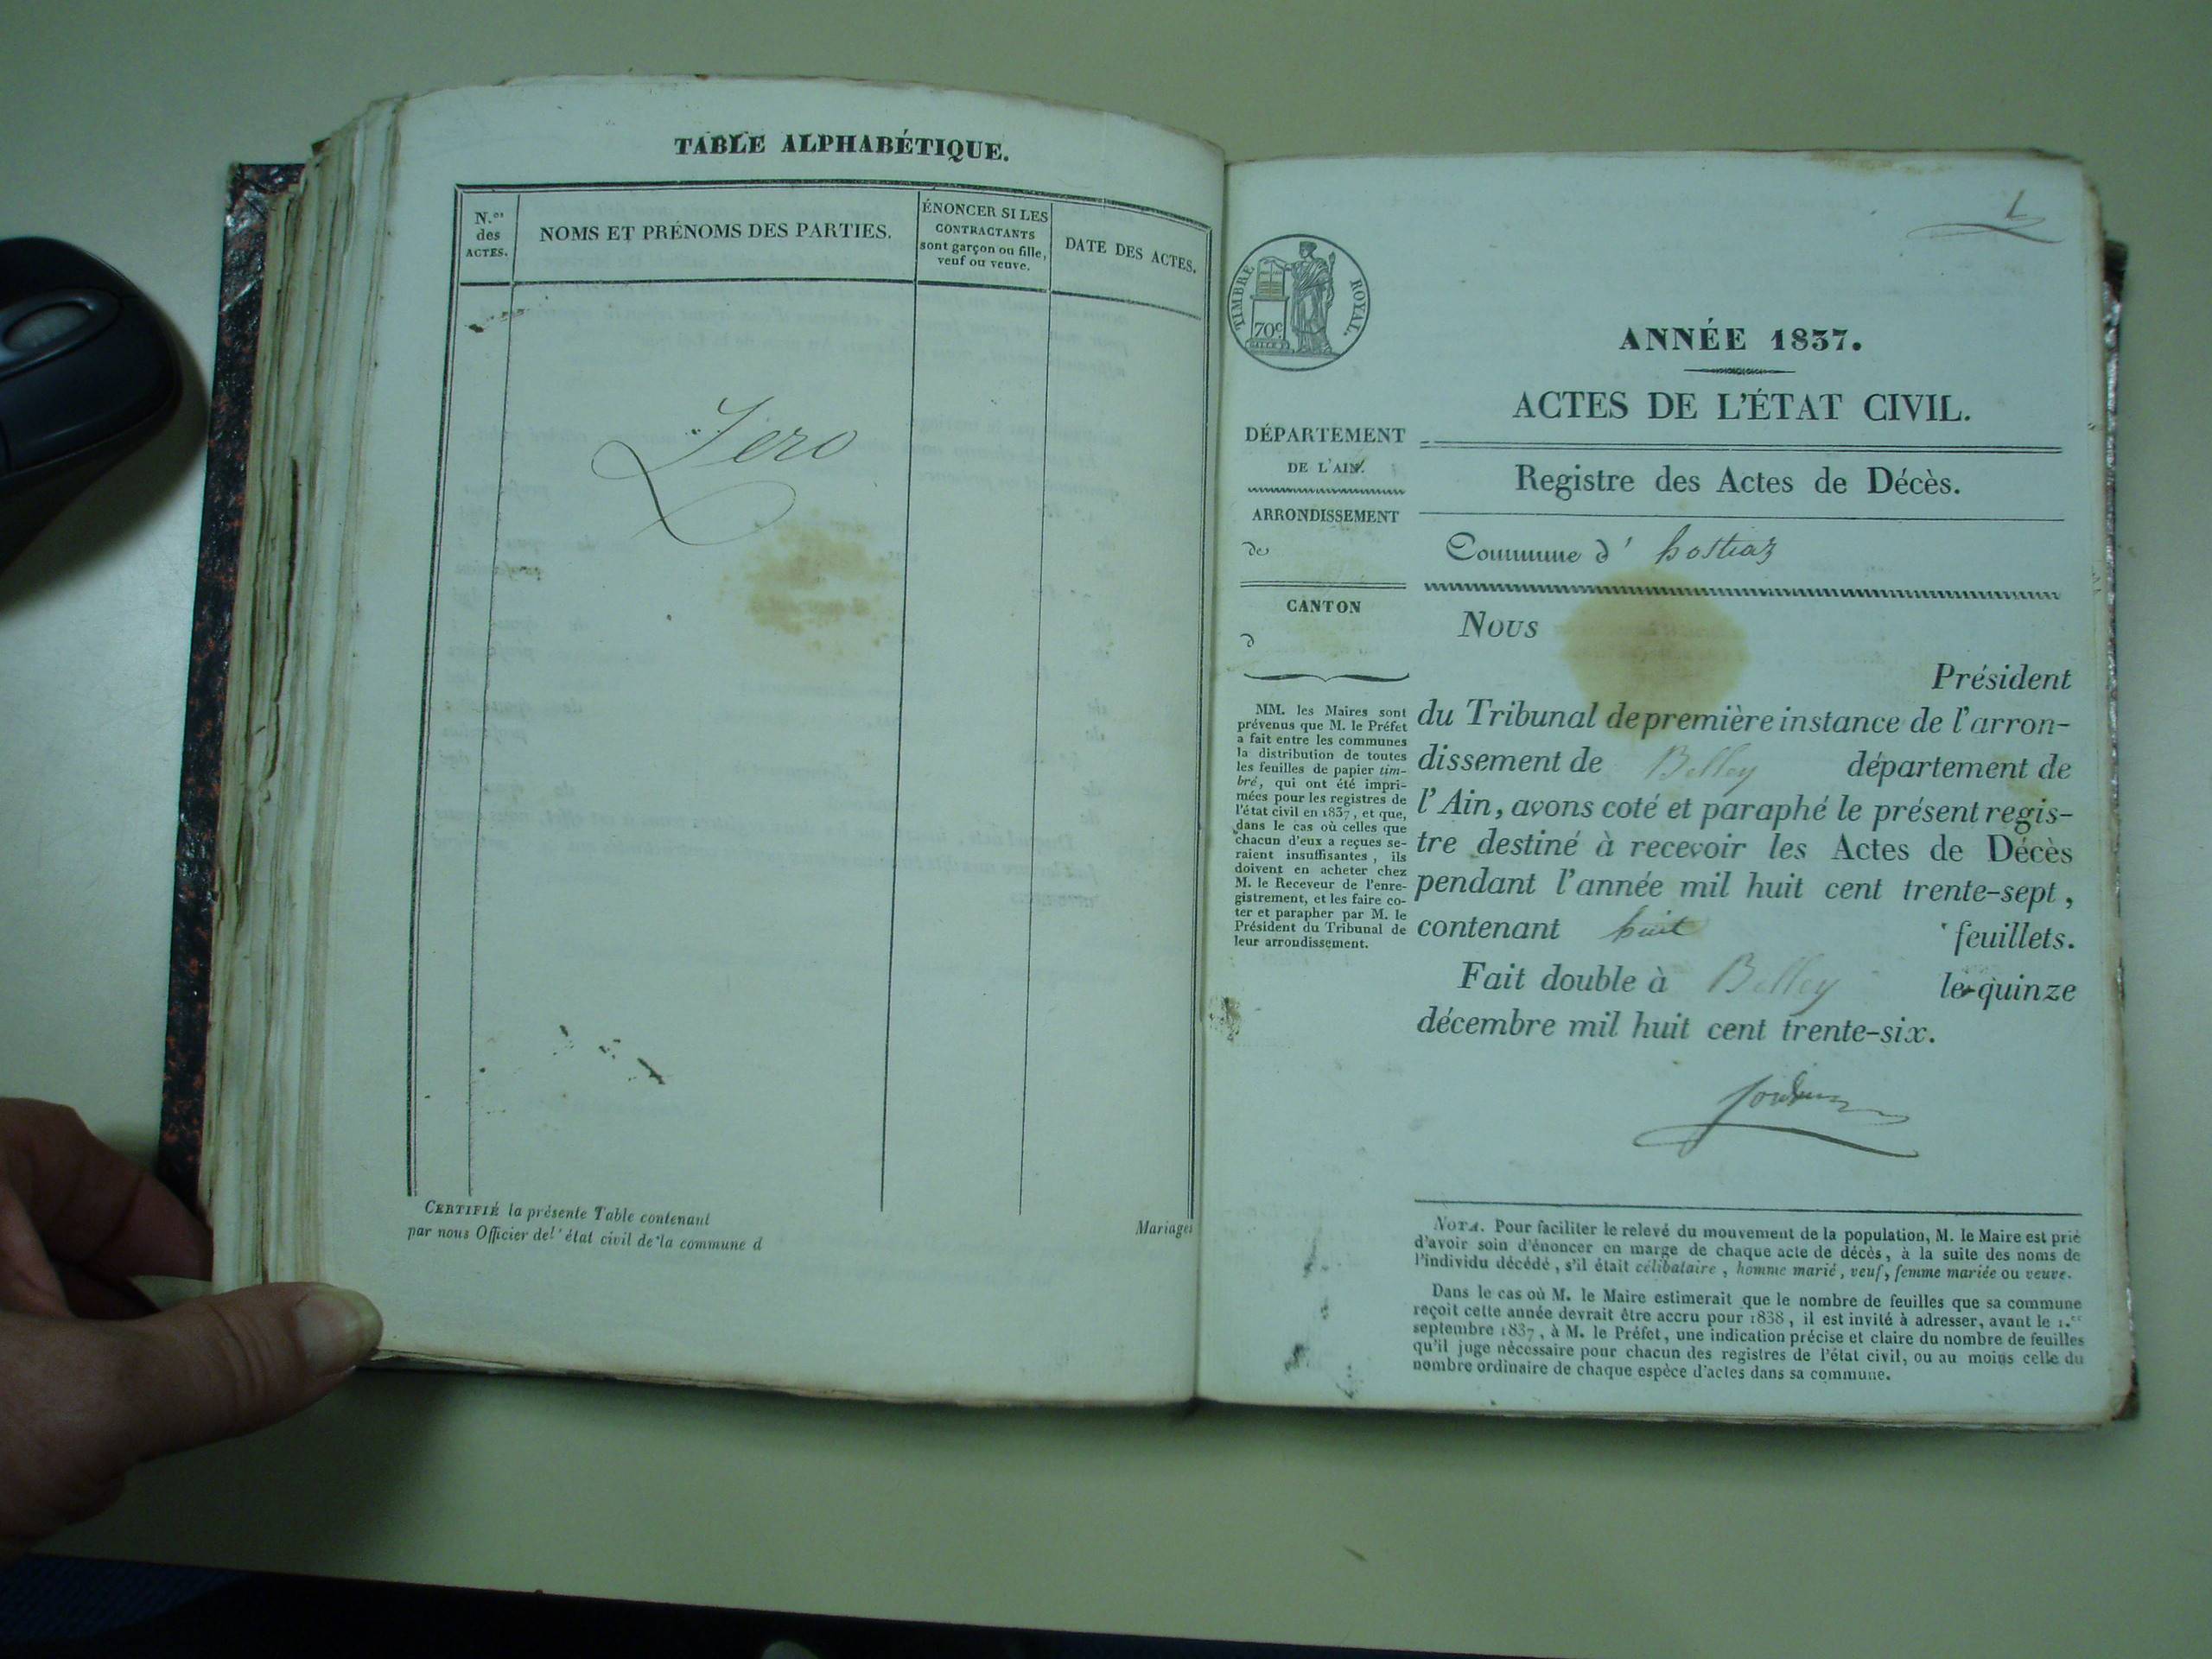 TABLE ALPHABÉTIQUE.
N.os
des
ACTES.
NOMS ET PRÉNOMS DES PARTIES.
ÉNONCER SI LES
CONTRACTANTS
sont garçon ou fille,
veuf ou veuve.
DATE DES ACTES.
Zero
CERTIFIÉ la présente Table contenant
Mariages
par nous Officier de l'état civil de la commune d
1
TIMBRE ROYAL.
70c.
ANNÉE 1837.
ACTES DE L'ÉTAT CIVIL.
DÉPARTEMENT
DE L'AIN.
ARRONDISSEMENT
de
CANTON
d
MM. les Maires sont
prévenus que M. le Préfet
a fait entre les communes
la distribution de toutes
les feuilles de papier tim-
bré, qui ont été impri-
mées pour les registres de
l'état civil en 1837, et que,
dans le cas où celles que
chacun d'eux a reçues se-
raient insuffisantes, ils
doivent en acheter chez
M. le Receveur de l'enre-
gistrement, et les faire co-
ter et parapher par M. le
Président du Tribunal de
leur arrondissement.
Registre des Actes de Décès.
Commune d' hostiaz
Nous
Président
du Tribunal de première instance de l'arron-
dissement de Belley département de
l'Ain, avons coté et paraphé le présent regis-
tre destiné à recevoir les Actes de Décès
pendant l'année mil huit cent trente-sept,
contenant huit feuillets.
Fait double à Belley le quinze
décembre mil huit cent trente-six.
NOTA. Pour faciliter le relevé du mouvement de la population, M. le Maire est prié
d'avoir soin d'énoncer en marge de chaque acte de décès, à la suite des noms de
l'individu décédé, s'il était célibataire, homme marié, veuf, femme mariée ou veuve.
Dans le cas où M. le Maire estimerait que le nombre de feuilles que sa commune
reçoit cette année devrait être accru pour 1838, il est invité à adresser, avant le 1.er
septembre 1837, à M. le Préfet, une indication précise et claire du nombre de feuilles
qu'il juge nécessaire pour chacun des registres de l'état civil, ou au moins celle du
nombre ordinaire de chaque espèce d'actes dans sa commune.